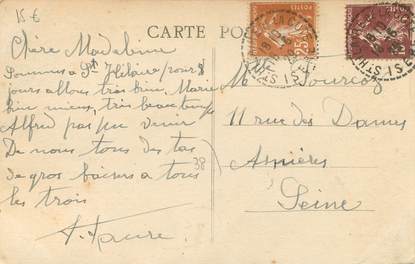 15 €
CARTE POS
Chère Madeleine
Sommes à St Hilaire pour 8
jours allons très bien, Marie
bien mieux, très beau temps
Alfred pas pu venir
De nous tous des tas
de gros baisers à tous
les trois
38
M
11 rue des Dames
Asnières
Seine